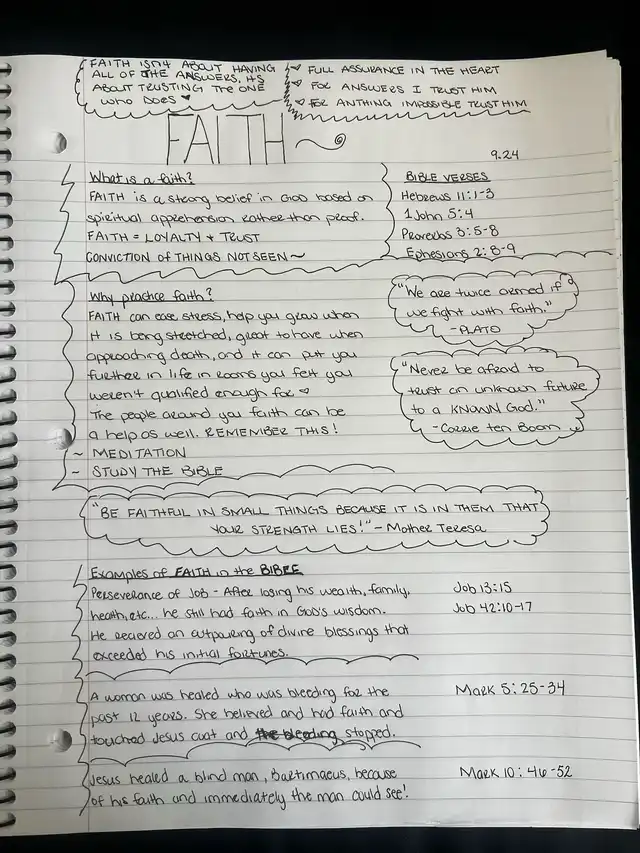 FAITH ISN'T ABOUT HAVING
ALL OF THE ANSWERS, ITS
ABOUT TRUSTING THE ONE
WHO DOES ♥
♡ FULL ASSURANCE IN THE HEART
♡ FOR ANSWERS I TRUST HIM
♡ FOR ANTHING IMPOSSIBLE TRUST HIM
FAITH
9.24
What is a faith?
FAITH is a strong belief in GOD based on
spiritual apprehension rather than proof.
FAITH = LOYALTY + TRUST
CONVICTION OF THINGS NOT SEEN ~
BIBLE VERSES
Hebrews 11:1-3
1 John 5:4
Proverbs 3:5-8
Ephesians 2:8-9
Why practice faith?
FAITH can ease stress, help you grow when
it is being stretched, great to have when
approaching death, and it can put you
further in life in rooms you felt you
weren't qualified enough for ♡
The people around you faith can be
a help as well. REMEMBER THIS!
~ MEDITATION
~ STUDY THE BIBLE
"We are twice armed if
we fight with faith."
-PLATO
"Never be afraid to
trust an unknown future
to a KNOWN God."
-Corrie ten Boom
"BE FAITHFUL IN SMALL THINGS BECAUSE IT IS IN THEM THAT
YOUR STRENGTH LIES!" - Mother Teresa
Examples of FAITH in the BIBLE
Perseverance of JOB - After losing his wealth, family,
health, etc... he still had faith in GOD's wisdom.
He recieved an outpouring of divine blessings that
exceeded his initial fortunes.
Job 13:15
Job 42:10-17
A woman was healed who was bleeding for the
past 12 years. She believed and had faith and
touched Jesus coat and the bleeding stopped.
Mark 5:25-34
Jesus healed a blind man, Bartimaeus, because
of his faith and immediately the man could see!
Mark 10:46-52